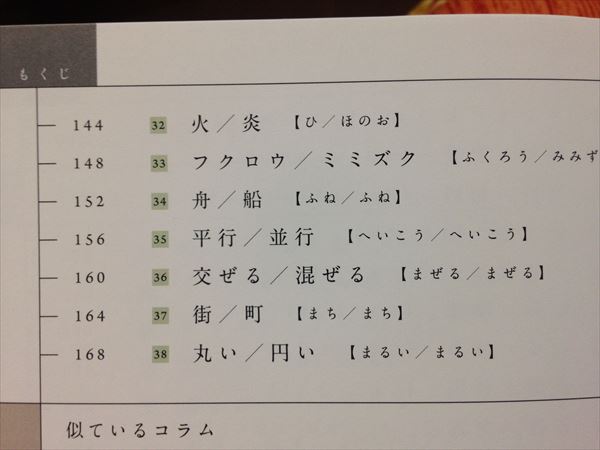 もくじ
144 32 火／炎 【ひ／ほのお】
148 33 フクロウ／ミミズク 【ふくろう／みみず
152 34 舟／船 【ふね／ふね】
156 35 平行／並行 【へいこう／へいこう】
160 36 交ぜる／混ぜる 【まぜる／まぜる】
164 37 街／町 【まち／まち】
168 38 丸い／円い 【まるい／まるい】
似ているコラム